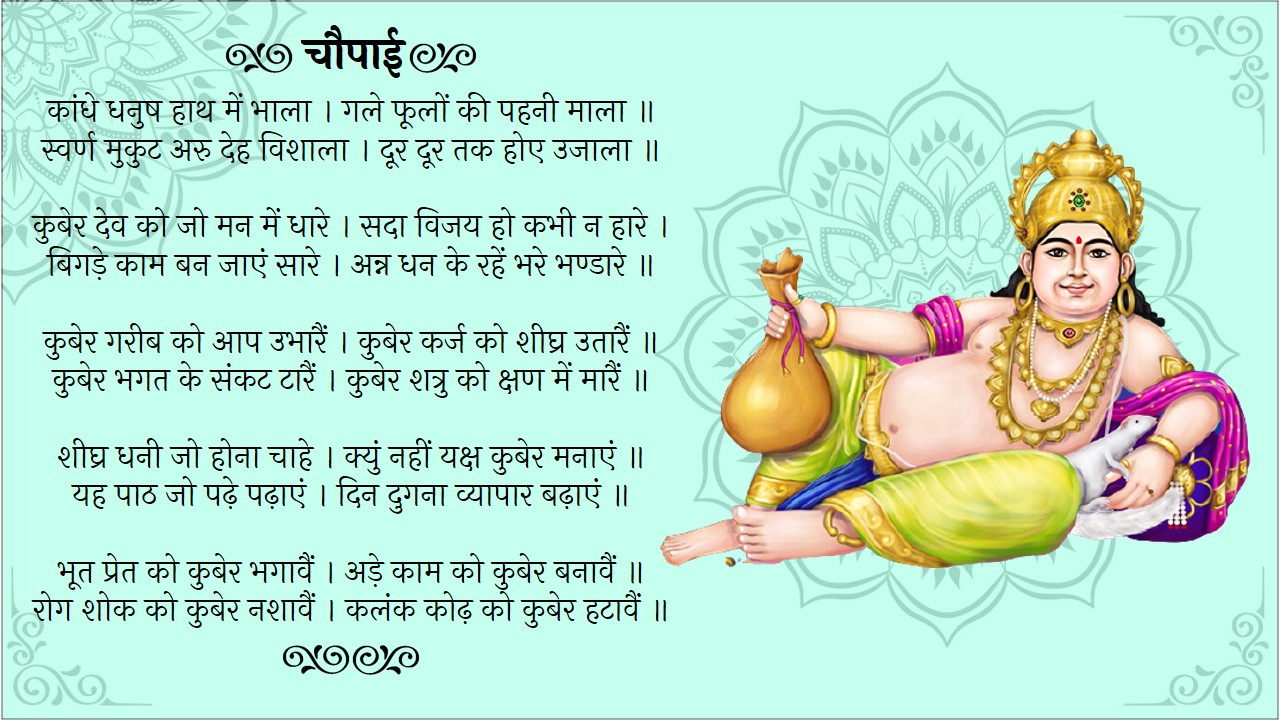 चौपाई
कांधे धनुष हाथ में भाला । गले फूलों की पहनी माला ॥
स्वर्ण मुकुट अरु देह विशाला । दूर दूर तक होए उजाला ॥
कुबेर देव को जो मन में धारे । सदा विजय हो कभी न हारे ।
बिगड़े काम बन जाएं सारे । अन्न धन के रहें भरे भण्डारे ॥
कुबेर गरीब को आप उभारैं । कुबेर कर्ज को शीघ्र उतारैं ॥
कुबेर भगत के संकट टारैं । कुबेर शत्रु को क्षण में मारैं ॥
शीघ्र धनी जो होना चाहे । क्युं नहीं यक्ष कुबेर मनाएं ॥
यह पाठ जो पढ़े पढ़ाएं । दिन दुगना व्यापार बढ़ाएं ॥
भूत प्रेत को कुबेर भगावैं । अड़े काम को कुबेर बनावैं ॥
रोग शोक को कुबेर नशावैं । कलंक कोढ़ को कुबेर हटावैं ॥